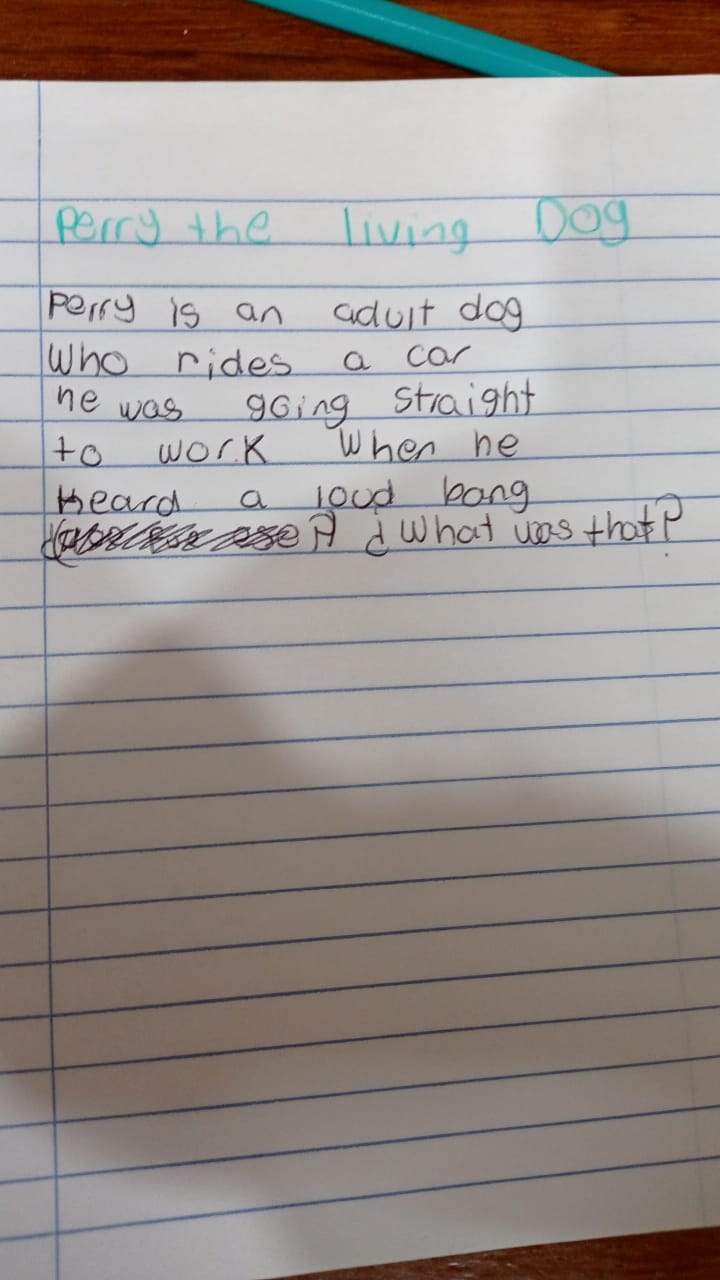 Perry the living Dog
Perry is an adult dog
Who rides a car
he was going straight
to work When he
Heard a loud bang
¿What was that?